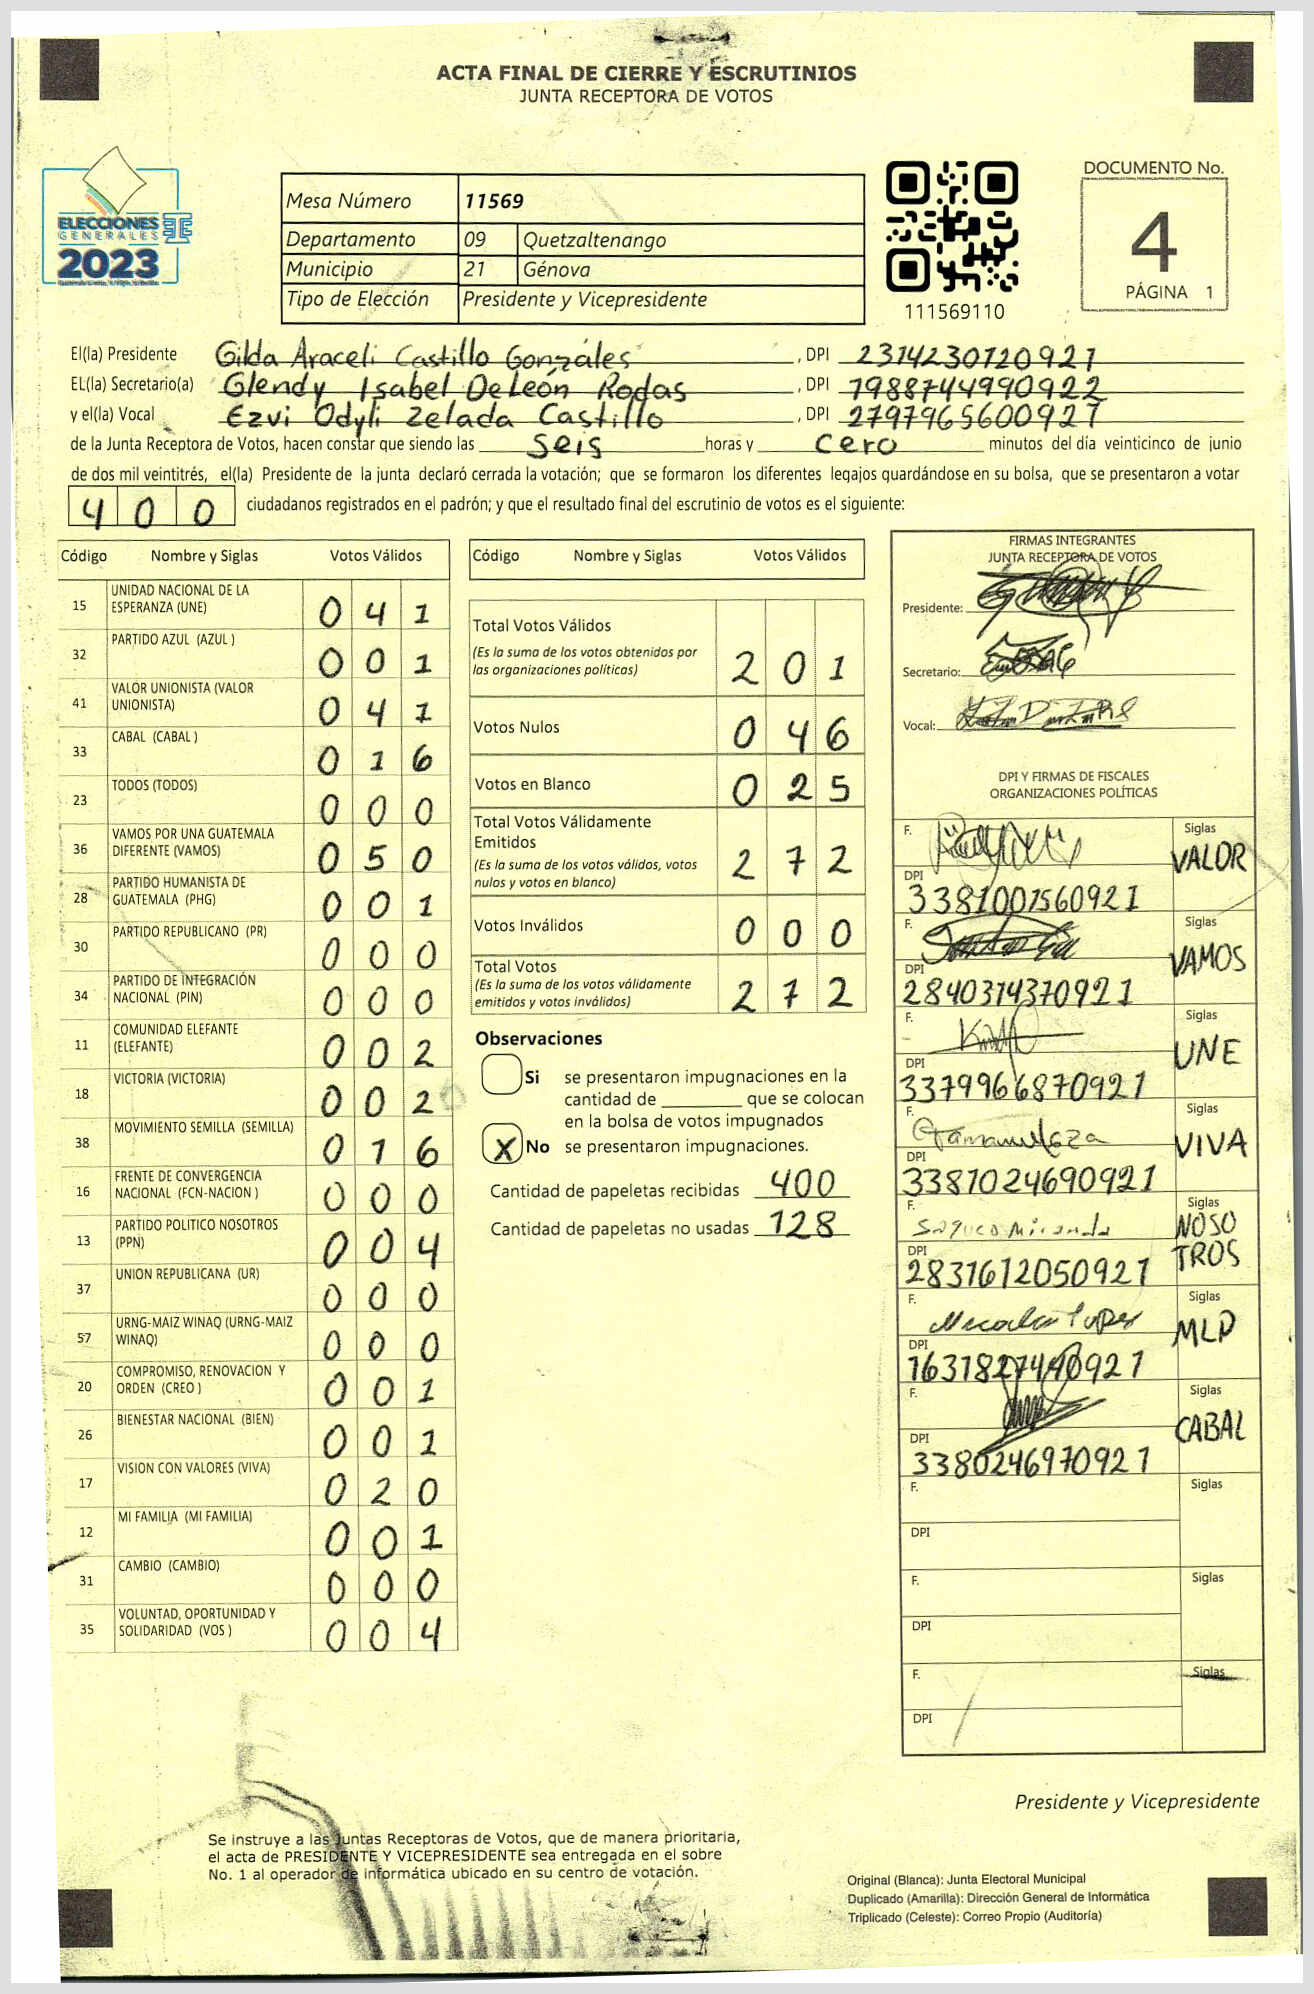 ACTA FINAL DE CIERRE Y ESCRUTINIOS
JUNTA RECEPTORA DE VOTOS
ELECCIONES
GENERALES
2023
Mesa Número 11569
Departamento 09 Quetzaltenango
Municipio 21 Génova
Tipo de Elección Presidente y Vicepresidente
111569110
DOCUMENTO No.
4
PÁGINA 1
El(la) Presidente Gilda Araceli Castillo Gonzáles, DPI 2314230120921
EL(la) Secretario(a) Glendy Isabel DeLeón Rodas, DPI 1988744990922
y el(la) Vocal Ezvi Odyli Zelada Castillo, DPI 2797965600921
de la Junta Receptora de Votos, hacen constar que siendo las seis horas y cero minutos del día veinticinco de junio
de dos mil veintitrés, el(la) Presidente de la junta declaró cerrada la votación; que se formaron los diferentes legajos guardándose en su bolsa, que se presentaron a votar
400 ciudadanos registrados en el padrón; y que el resultado final del escrutinio de votos es el siguiente:
Código Nombre y Siglas Votos Válidos
15 UNIDAD NACIONAL DE LA ESPERANZA (UNE) 041
32 PARTIDO AZUL (AZUL ) 001
41 VALOR UNIONISTA (VALOR UNIONISTA) 041
33 CABAL (CABAL ) 016
23 TODOS (TODOS) 000
36 VAMOS POR UNA GUATEMALA DIFERENTE (VAMOS) 050
28 PARTIDO HUMANISTA DE GUATEMALA (PHG) 001
30 PARTIDO REPUBLICANO (PR) 000
34 PARTIDO DE INTEGRACIÓN NACIONAL (PIN) 000
11 COMUNIDAD ELEFANTE (ELEFANTE) 002
18 VICTORIA (VICTORIA) 002
38 MOVIMIENTO SEMILLA (SEMILLA) 016
16 FRENTE DE CONVERGENCIA NACIONAL (FCN-NACION ) 000
13 PARTIDO POLITICO NOSOTROS (PPN) 004
37 UNION REPUBLICANA (UR) 000
57 URNG-MAIZ WINAQ (URNG-MAIZ WINAQ) 000
20 COMPROMISO, RENOVACION Y ORDEN (CREO ) 001
26 BIENESTAR NACIONAL (BIEN) 001
17 VISION CON VALORES (VIVA) 020
12 MI FAMILIA (MI FAMILIA) 001
31 CAMBIO (CAMBIO) 000
35 VOLUNTAD, OPORTUNIDAD Y SOLIDARIDAD (VOS ) 004
Código Nombre y Siglas Votos Válidos
Total Votos Válidos
(Es la suma de los votos obtenidos por
las organizaciones políticas) 201
Votos Nulos 046
Votos en Blanco 025
Total Votos Válidamente
Emitidos
(Es la suma de los votos válidos, votos
nulos y votos en blanco) 272
Votos Inválidos 000
Total Votos
(Es la suma de los votos válidamente
emitidos y votos inválidos) 272
Observaciones
Si se presentaron impugnaciones en la
cantidad de ________ que se colocan
en la bolsa de votos impugnados
X No se presentaron impugnaciones.
Cantidad de papeletas recibidas 400
Cantidad de papeletas no usadas 128
FIRMAS INTEGRANTES
JUNTA RECEPTORA DE VOTOS
Presidente:
Secretario:
Vocal:
DPI Y FIRMAS DE FISCALES
ORGANIZACIONES POLÍTICAS
F. Siglas VALOR
DPI 3381001560921
F. Siglas VAMOS
DPI 2840314370921
F. Siglas UNE
DPI 3379966870921
F. Siglas VIVA
DPI 3381024690921
F. Siglas NOSO
TROS
DPI 2831612050921
F. Siglas MLP
DPI
F. Siglas CABAL
DPI 3380246970921
F. Siglas
DPI
F. Siglas
DPI
F. Siglas
DPI
Presidente y Vicepresidente
Se instruye a las Juntas Receptoras de Votos, que de manera prioritaria,
el acta de PRESIDENTE Y VICEPRESIDENTE sea entregada en el sobre
No. 1 al operador de informática ubicado en su centro de votación.
Original (Blanca): Junta Electoral Municipal
Duplicado (Amarilla): Dirección General de Informática
Triplicado (Celeste): Correo Propio (Auditoría)